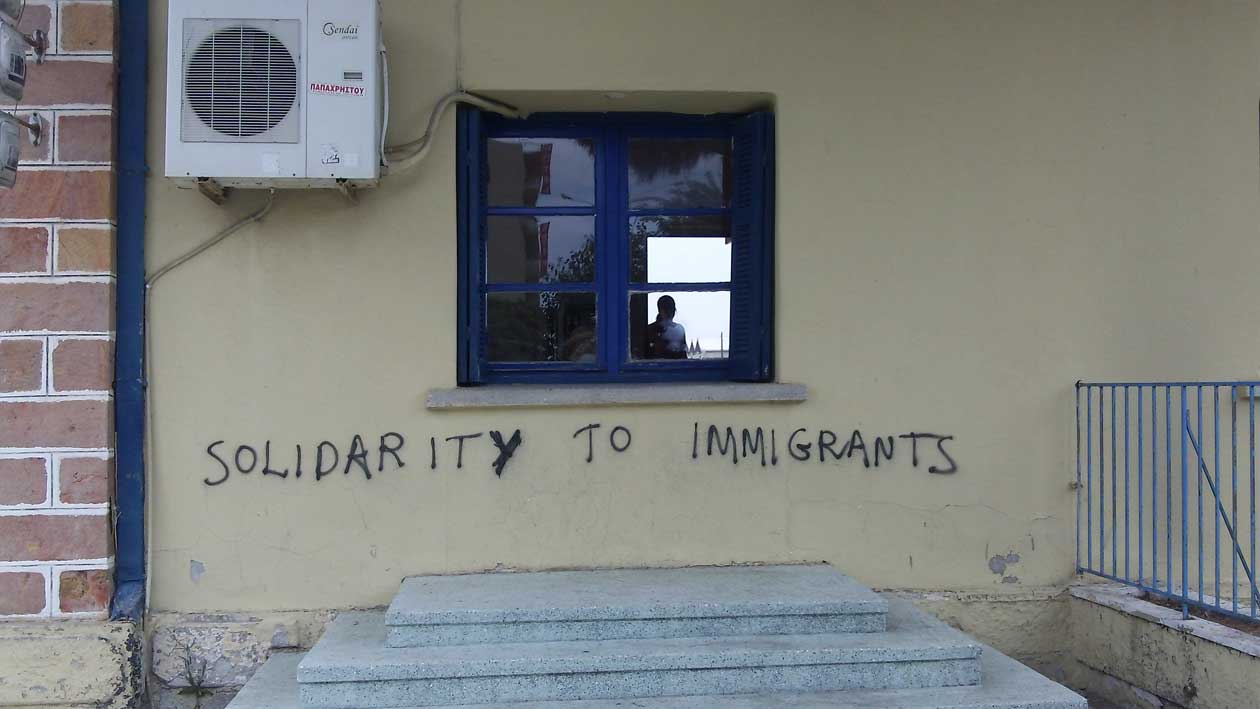 Sendai
ΠΑΠΑΧΡΗΣΤΟΥ
SOLIDARITY TO IMMIGRANTS